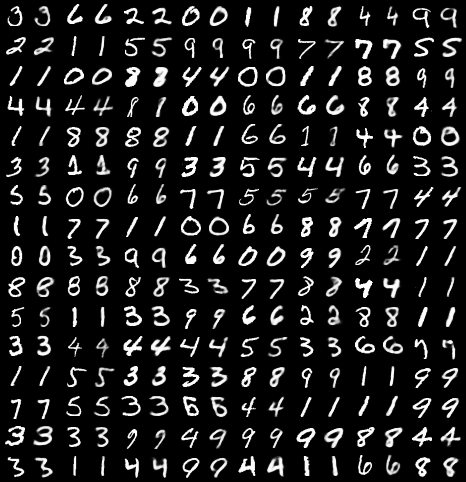 3 3 6 6 2 2 0 0 1 1 8 8 4 4 9 9
2 2 1 1 5 5 9 9 9 9 7 7 7 7 5 5
1 1 0 0 8 8 4 4 0 0 1 1 8 8 9 9
4 4 4 4 8 1 0 0 6 6 6 6 8 8 4 4
1 1 8 8 8 8 1 1 6 6 1 1 4 4 0 0
3 3 1 1 9 9 3 3 5 5 4 4 6 6 3 3
5 5 0 0 6 6 7 7 5 5 5 5 7 7 4 4
1 1 7 7 1 1 0 0 6 6 8 8 7 7 7 7
0 0 3 3 9 9 6 6 0 0 9 9 2 2 1 1
8 8 8 8 8 8 3 3 7 7 8 8 4 4 1 1
5 5 1 1 3 3 9 9 6 6 2 2 8 8 1 1
3 3 4 4 4 4 4 4 5 5 3 3 6 6 7 7
1 1 5 5 3 3 3 3 8 8 9 9 1 1 9 9
7 7 5 5 3 3 6 6 4 4 1 1 1 1 9 9
3 3 3 3 9 9 4 9 9 9 9 9 8 8 4 4
3 3 1 1 4 4 9 9 4 4 1 1 6 6 8 8